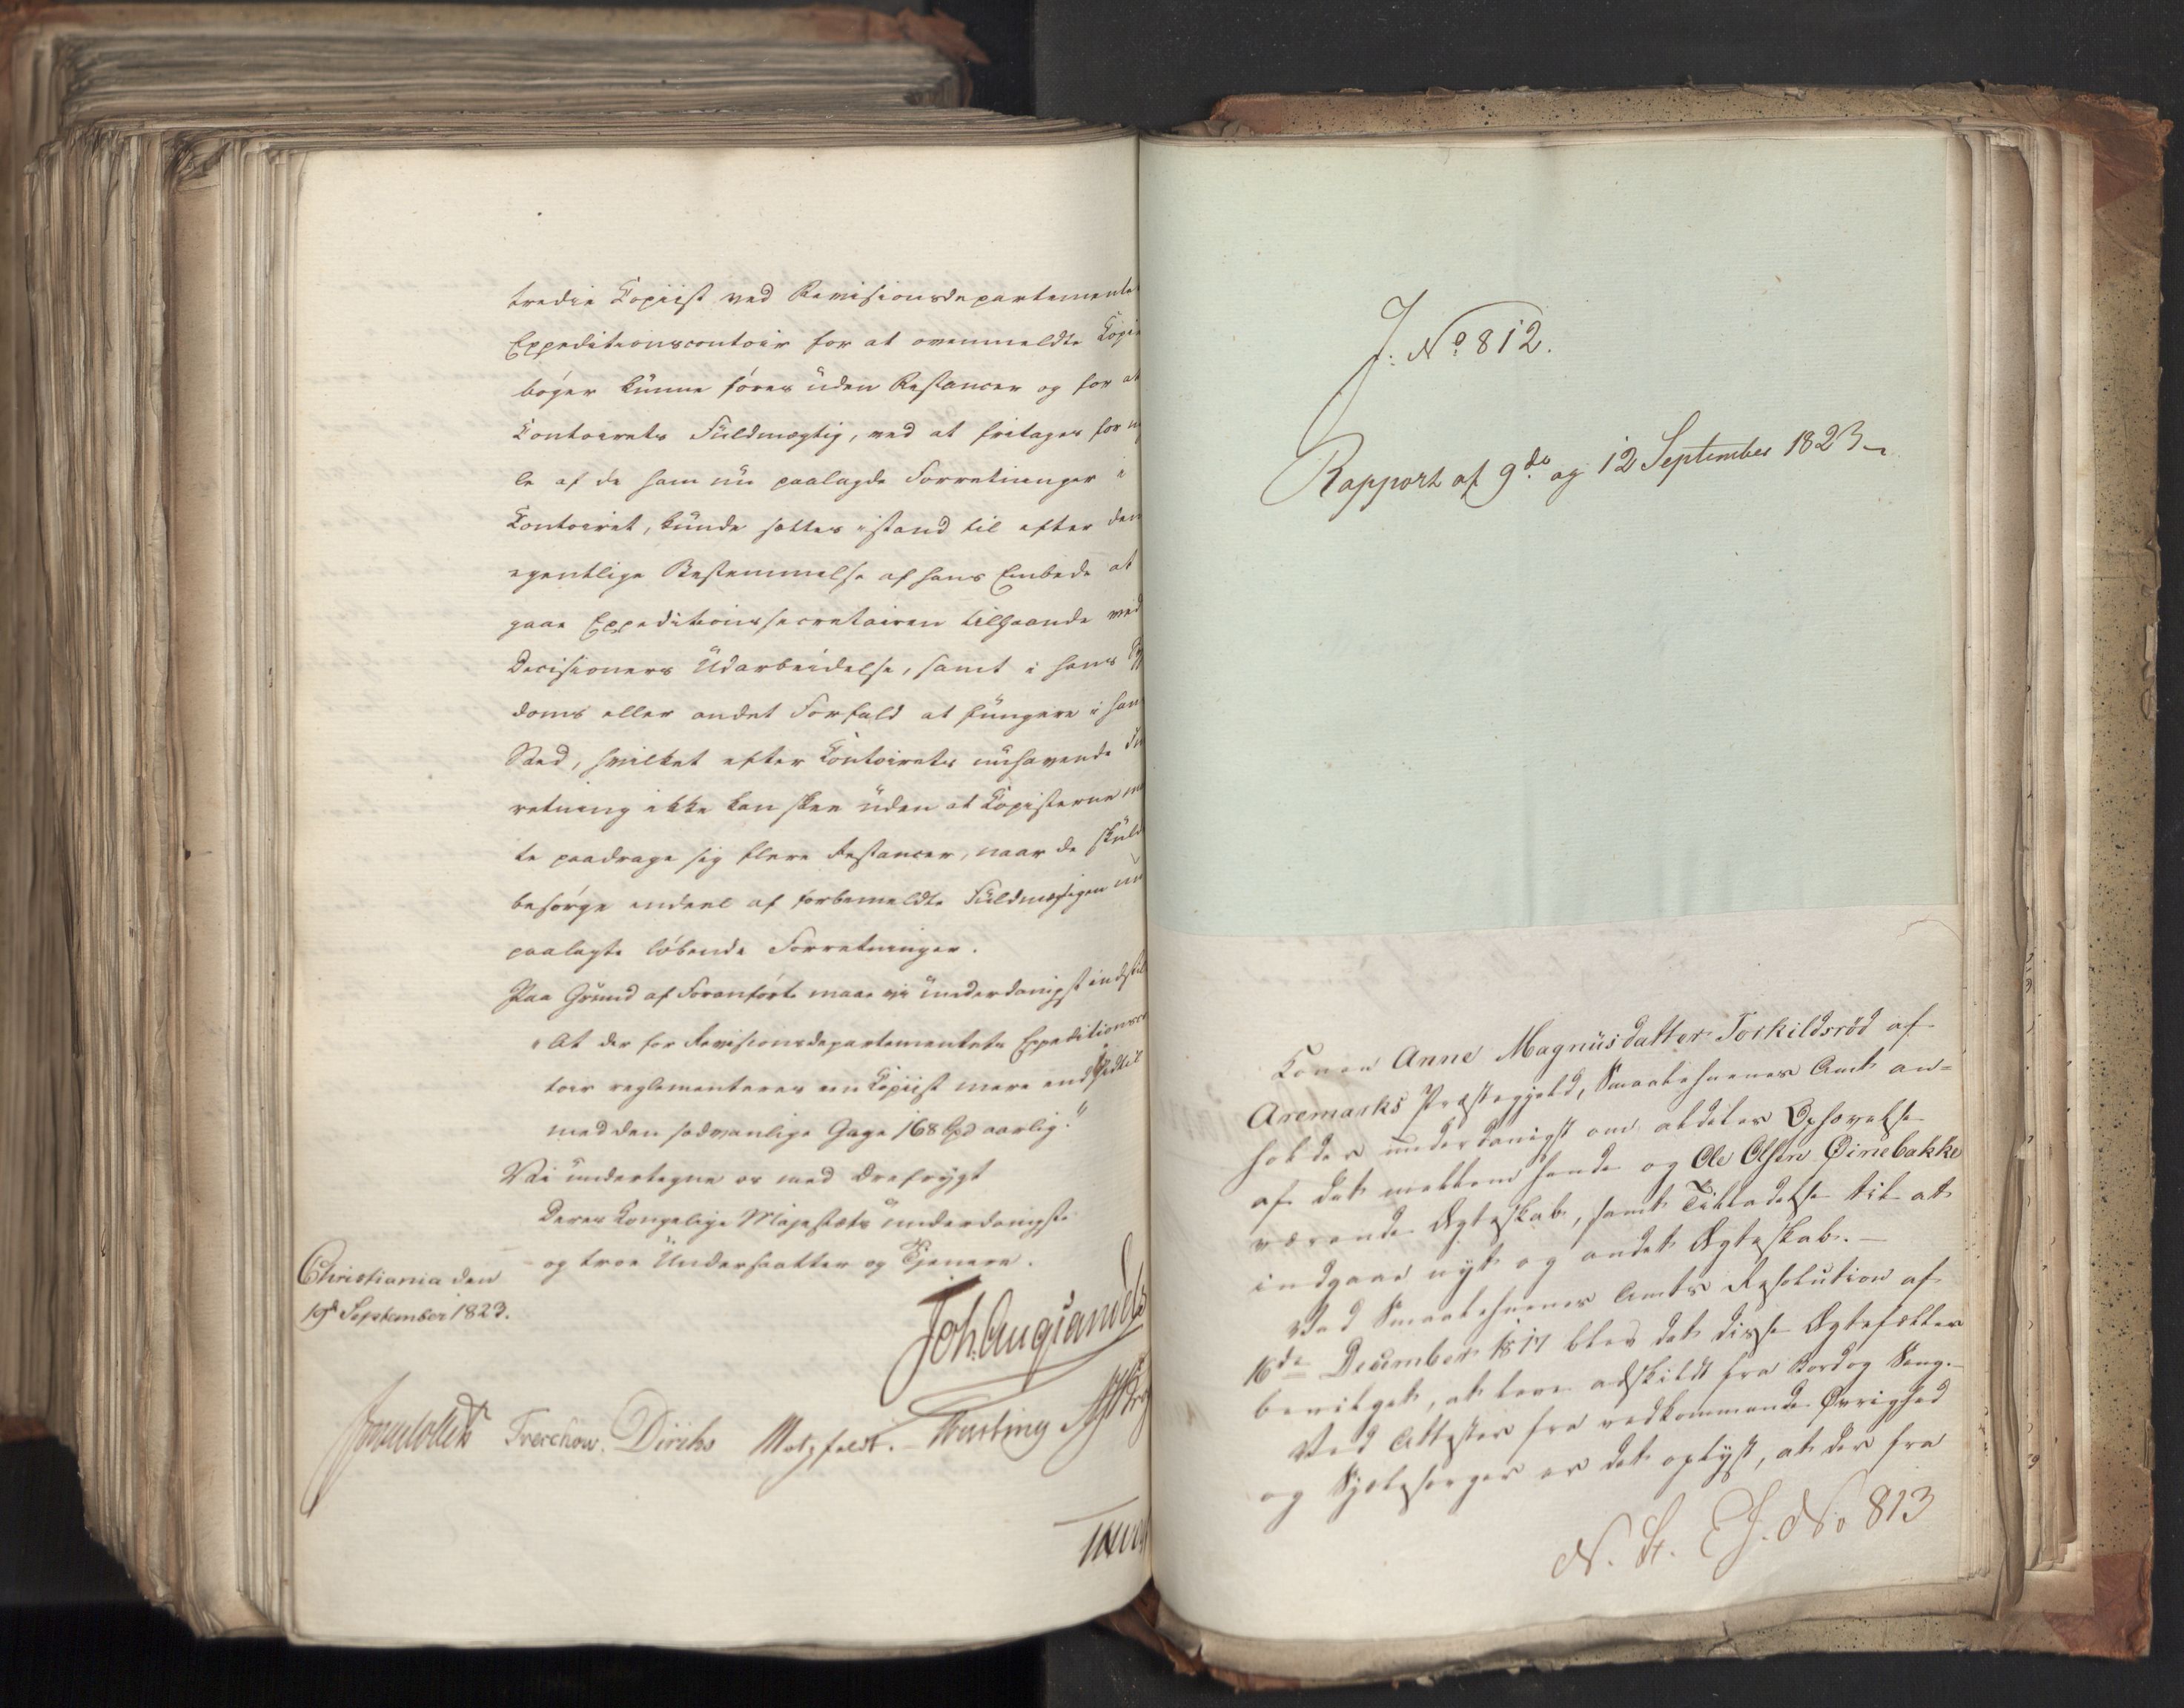 tredie Copiist ved Revisionsdepartementet
Expeditionscontoir for at ovenmeldte Copie
bøger kunne føres uden Restancer og for at
Contoirets Fuldmægtig, ved at fritages for
le af de ham nu paalagde Forretninger i
Contoiret, kunde sættes istand til efter den
egentlige Bestemmelse af hans Embede at
gaae Expeditionssecretairen tilhaande ved
Decisioners Udarbeidelse, samt i hans Syg
doms eller andet Forfald at fungere i hans
Sted, hvilket efter Contoirets nuhavende Ind
retning ikke kan skee uden at Copisterne maat
te paadrage sig flere Restancer, naar de skulde
besørge endeel af forbemeldte Fuldmægtigen nu
paalagte løbende Forretninger.
Paa Grund af Foranførte maae vi underdanigst indstille
"At der for Revisionsdepartementets Expeditionscon
toir reglementeres en Copiist mere end hidtil
med den sædvanlige Gage 168 Spd aarlig."
Vi undertegne os med Ærefrygt
Deres Kongelige Majestæts underdanigste
og troe Undersaatter og Tjenere.
Christiania den
19d September 1823.
Joh. Aug. Sandels
Sommerhielm Treschow. Diriks Motzfeldt. Fasting
J: No 812.
Rapport af 9de og 12 September 1823
Konen Anne Magnusdatter Torkildsrød af
Aremarks Præstegjeld, Smaalehnenes Amt an=
holder underdanigst om aldeles Ophævelse
af det mellem hende og Ole Olsen Øinebakke
værende Ægteskab, samt Tilladelse til at
indgaae nyt og andet Ægteskab. —
Ved Smaalehnenes Amts Resolution af
16de December 1817 blev det disse Ægtefæller
bevilget, at leve adskildt fra Bord og Seng.
Ved Attester fra vedkommende Øvrighed
og Sjælesørger er det oplyst, at der fra
N. St. E J. No 813